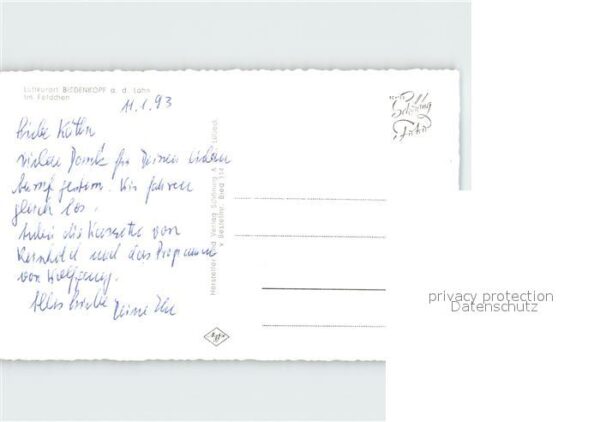 Luftkurort BIEDENKOPF a. d. Lahn
Im Feldchen
11.1.93
Liebe Käthe
vielen Dank für Deinen lieben
Anruf gestern. Wir fahren
gleich los.
die Kassette von
und das Programm
von Wolfgang.
Alles Liebe Deine
Hersteller und Verlag Schöning & Co Lübeck
Bestellnr. Bied
Schöning
Foto
Agfa
privacy protection
Datenschutz